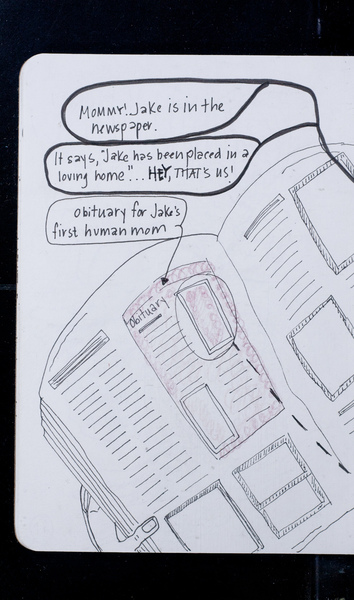 Mommy! Jake is in the
newspaper.
It says, "Jake has been placed in a
loving home"... HEY, THAT'S US!
obituary for Jake's
first human mom
Obituary